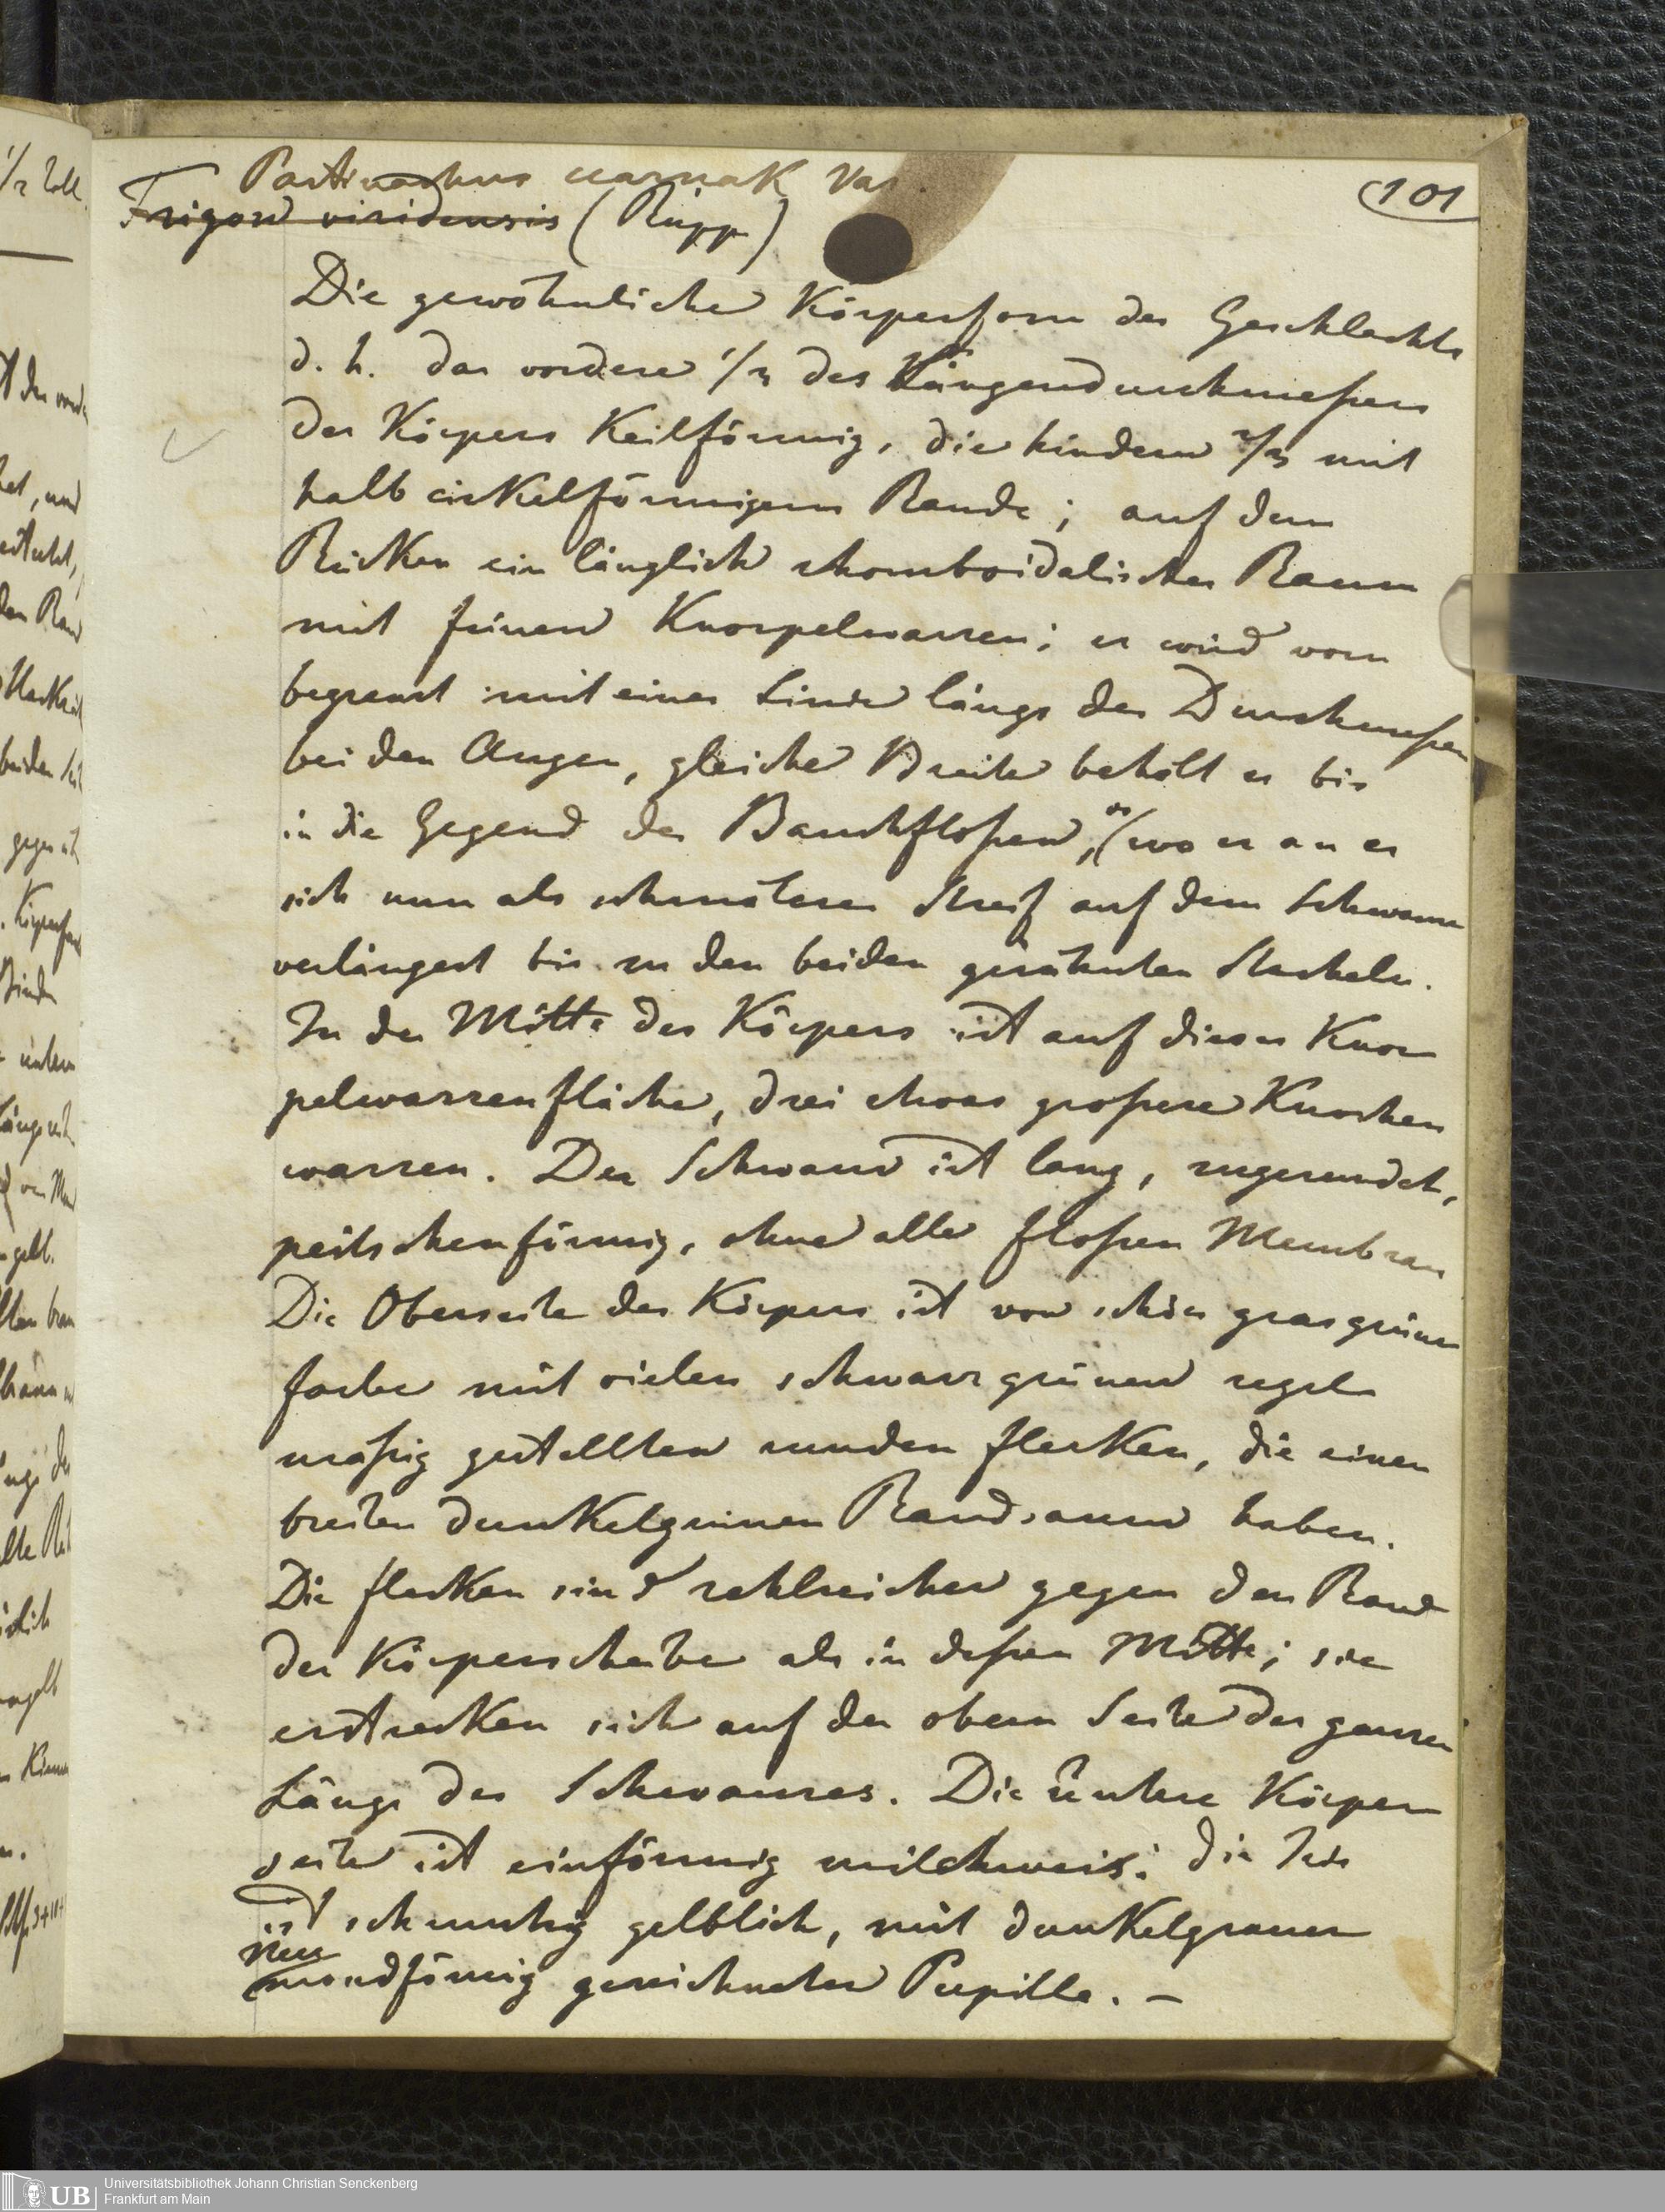 101
Pastinachus uarnak Var.
Trigon viridensis (Rüpp)
Die gewöhnliche Körperform des Geschlechts
d. h. das vordere 1/3 des Längendurchmeßers
des Körpers Keilförmig, die hindern 2/3 mit
halb cirkelförmigem Rande; auf dem
Rücken ein länglich rhomboidalischer Raum
mit feinen Knorpelwarzen; er wird vorn
begrenzt mit einer Linie längs des Durchmeßers
bei den Augen, gleiche Breite behält er bis
in die Gegend der Bauchfloßen, wo er
sich nun als schmälerer Streif auf dem Schwanz
verlängert bis zu den beiden gezähnten Stacheln.
In der Mitte des Körpers ist auf dieser Knor
pelwarzenfläche, drei etwas großere Knochen
warzen. Der Schwanz ist lang, zugerundet,
peitschenförmig, ohne alle floßen Membran
Die Oberseite des Körpers ist von schön grasgrüner
farbe mit vielen schwarzgrünen regel
mäßig gestellten runden flecken, die einen
breiten dunkelgrünen Randsaum haben.
Die flecken sind zahlreicher gegen den Rand
der Körperscheibe als in deßen Mitte; sie
erstrecken sich auf der obern Seite der ganzen
Länge des Schwanzes. Die untere Körper
seite ist einförmig milchweis: die Iris
ist schmutzig gelblich, mit dunkelgrauer
neu
mondförmig gezeichneter Pupille. –
1/2 Zoll.
UB
Universitätsbibliothek Johann Christian Senckenberg
Frankfurt am Main